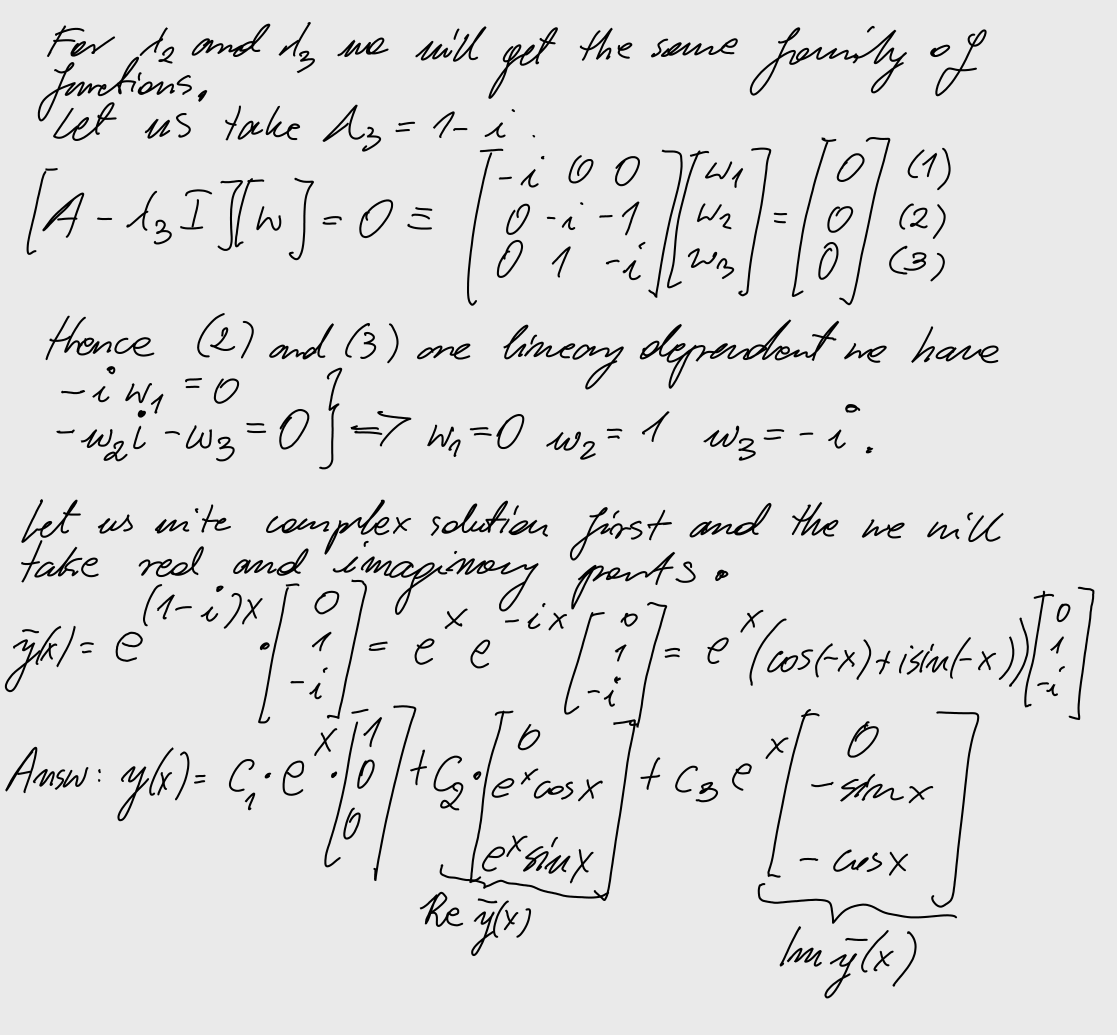 For λ₂ and λ₃ we will get the same family of
functions.
Let us take λ₃ = 1 - i.
[A - λ₃ I][w] = 0 ≡ [-i 0 0; 0 -i -1; 0 1 -i][w₁; w₂; w₃] = [0; 0; 0] (1) (2) (3)
Hence (2) and (3) are lineary dependent we have
-i w₁ = 0
-w₂i - w₃ = 0 } => w₁ = 0 w₂ = 1 w₃ = -i.
Let us write complex solution first and the we will
take real and imaginary parts.
ȳ(x) = e^((1-i)x) · [0; 1; -i] = e^x e^(-ix) [0; 1; -i] = e^x (cos(-x) + i sin(-x)) [0; 1; -i]
Answ: y(x) = C₁ · e^x · [1; 0; 0] + C₂ · [0; e^x cos x; e^x sin x] + C₃ e^x [0; -sin x; -cos x]
Re ȳ(x) Im ȳ(x)